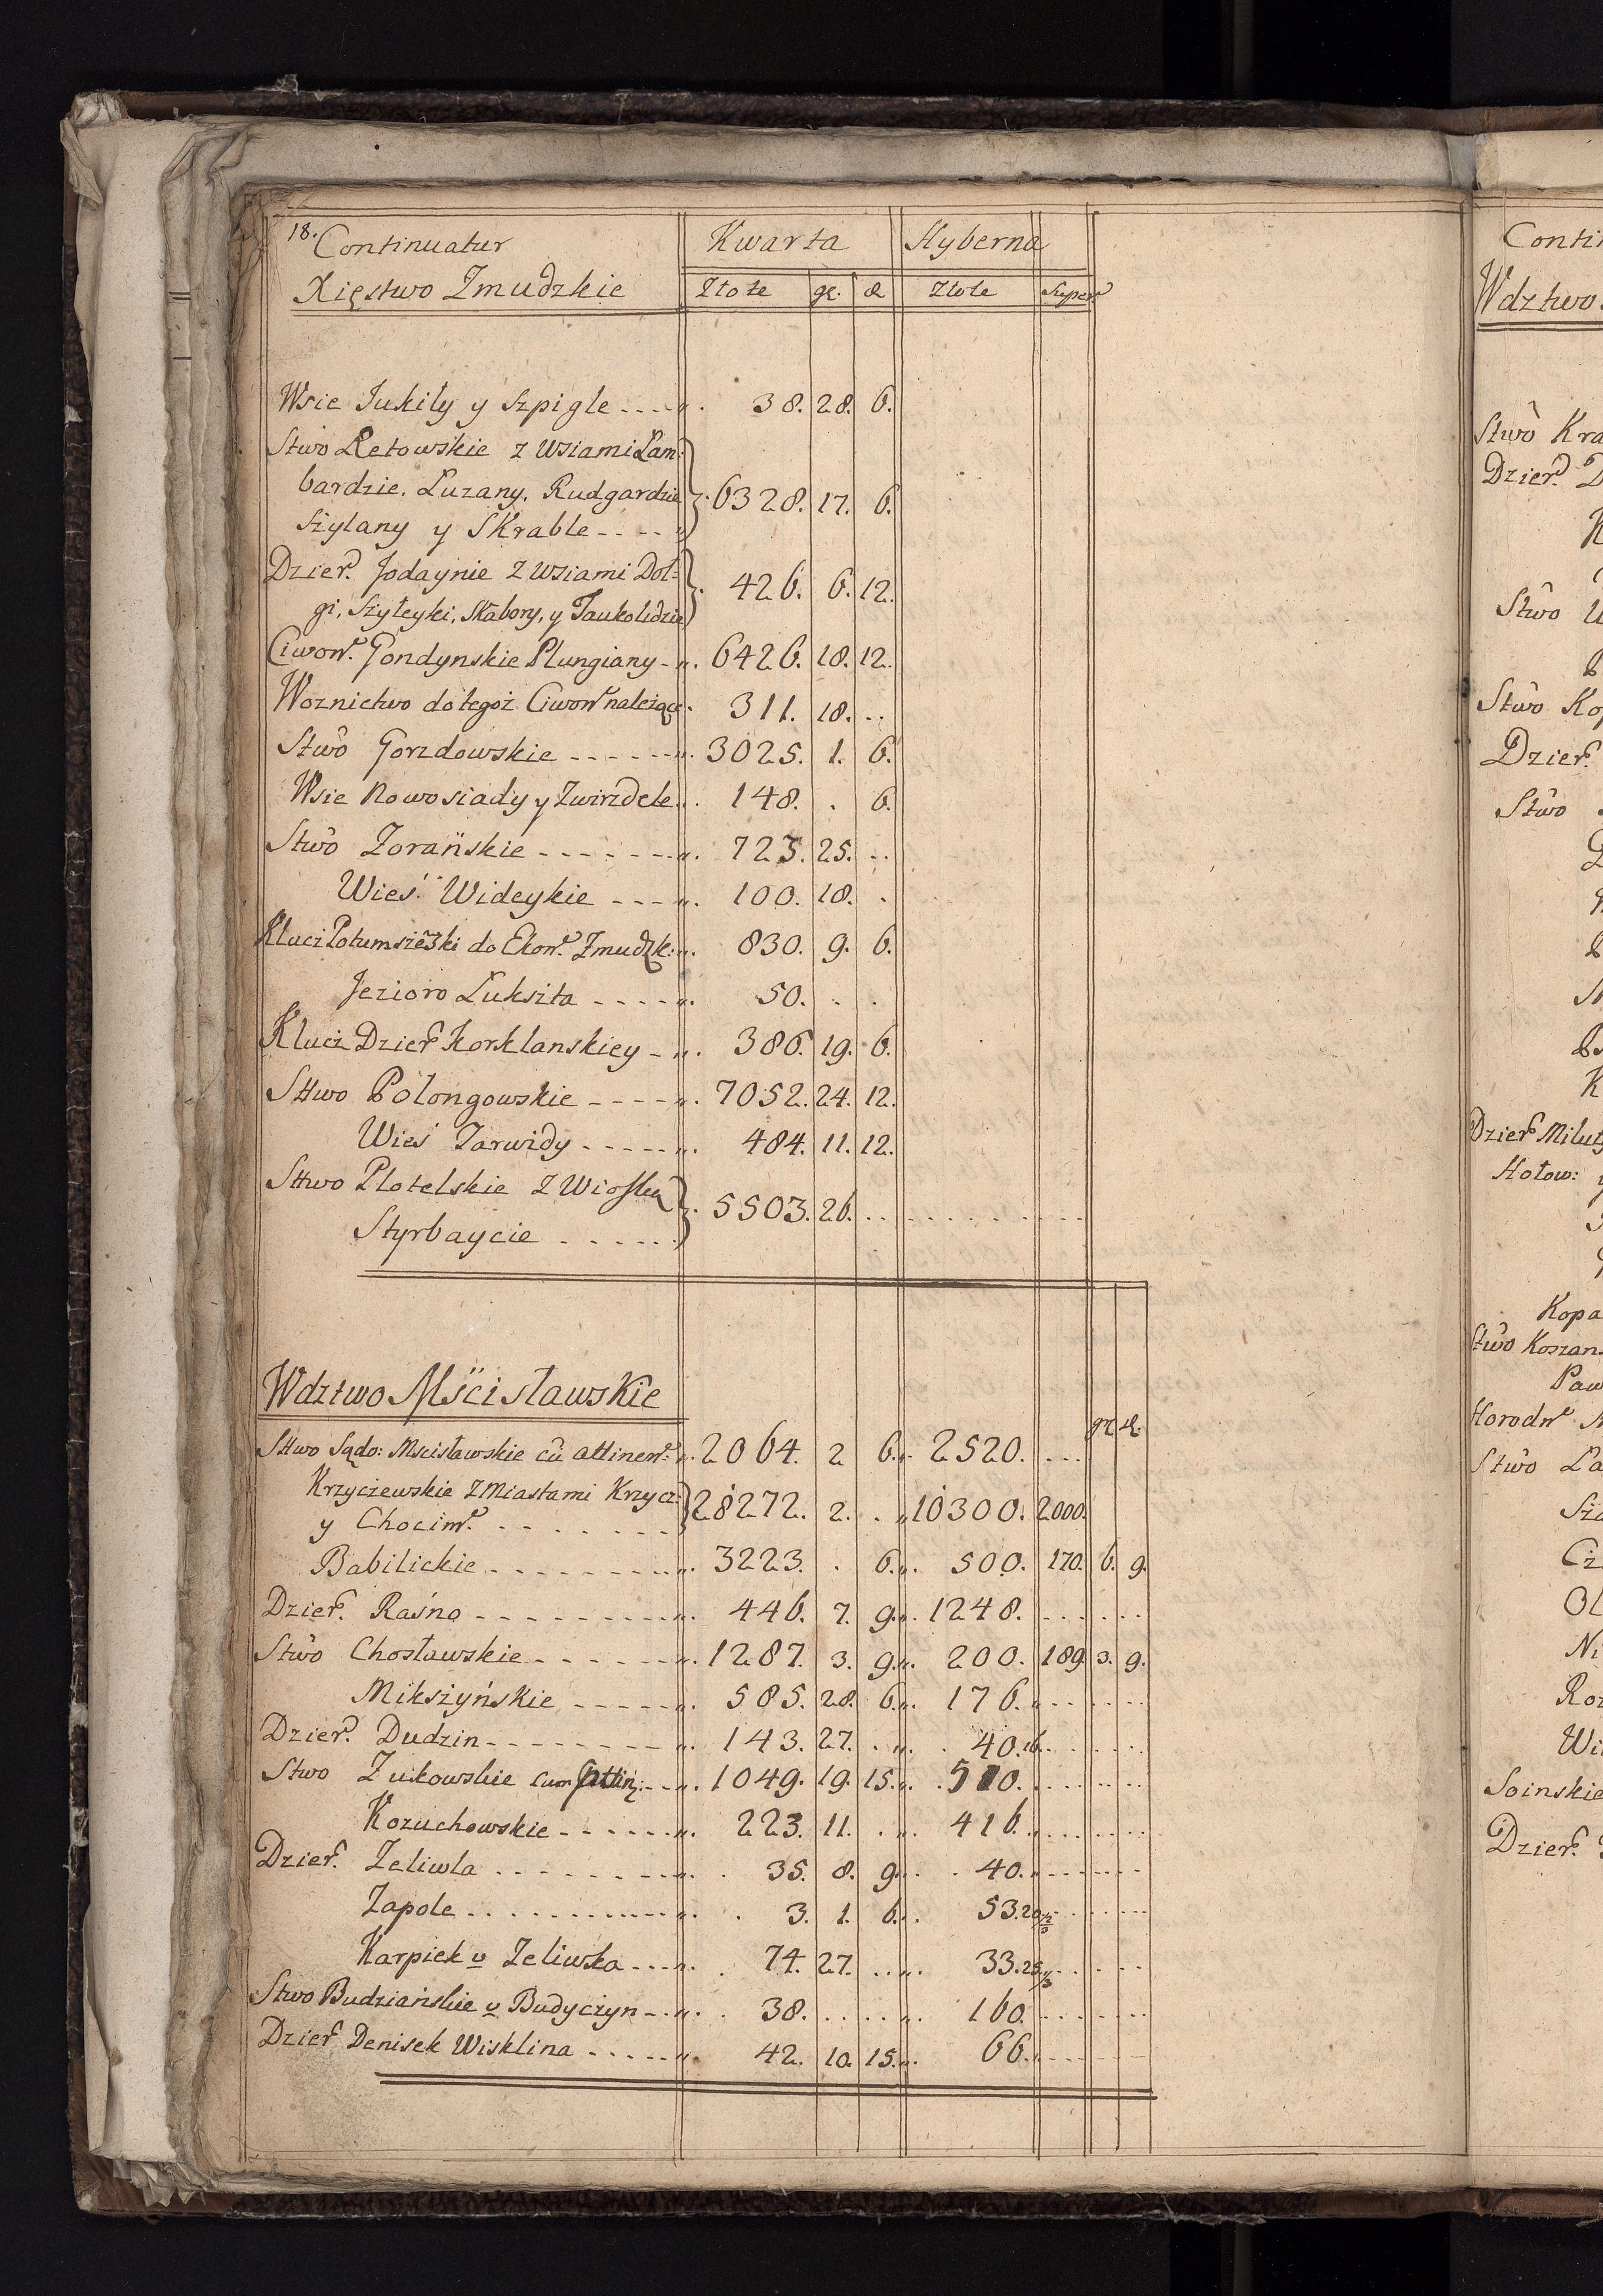 18. Continuatur Kwarta Hyberna
Xięstwo Zmudzkie Złote gr. d Złote Super
Wsie Jukiły y Szpigle 38. 28. 6.
Stwo Retowskie z Wsiami Lam:
bardzie, Luzany, Rudgardzie 6328. 17. 6.
Szylany y Skrable
Dzier. Jodaynie z Wsiami Doł=
gi, Szyłeyki, Skabory, y Taukolidzie 426. 6. 12.
Ciwon. Gondynskie Plungiany 6426. 18. 12.
Woznictwo do tegoż Ciwon należące 311. 18. ..
Stwo Gorzdowskie 3025. 1. 6.
Wsie Nowosiady y Zwirzdele 148. . 6.
Stwo Zorańskie 723. 25. ..
Wieś Wideykie 100. 18. .
Klucz Potumszeżki do Ekon. Zmudzk: 830. 9. 6.
Jezioro Lukszta 50. . .
Klucz Dzier Korklanskiey 386. 19. 6.
Sttwo Polongowskie 7052. 24. 12.
Wieś Tarwidy 484. 11. 12.
Sttwo Plotelskie z Wioską
Styrbaycie 5503. 26. ..
Wdztwo Mścisławskie
gr d.
Sttwo Sądo: Mscisławskie cū attinen: 2064. 2 6. 2520. ...
Krzyczewskie z Miastami Krzycz:
y Chocim. 28272. 2. . 10300. 2000.
Babilickie 3223. . 6. 500. 170. 6. 9.
Dzier. Raśna 446. 7. 9. 1248.
Stwo Chosławskie 1287. 3. 9. 200. 189. 3. 9.
Mikszyńskie 585. 28. 6. 176.
Dzier. Dudzin 143. 27. . 40. 16.
Stwo Zukowskie cum Attin: 1049. 19. 15. 510.
Kozuchowskie 223. 11. . 416.
Dzier. Zeliwla 35. 8. 9. 40.
Zapole 3. 1. 6. 53. 20
Karpiek v Zeliwska 74. 27. .. 33. 25 1/3
Stwo Budziańskie v Budyczyn 38. 160.
Dzier Denisek Wisklina 42. 10. 15. 66.
Wdztwo
Stwo Kra
Dzier.
Stwo
Stwo Kop
Dzier.
Stwo
Dzier Miluty
Hołow:
Kopa
Stwo Koszan
Paw
Horodn
Stwo
Soinskie
Dzier.